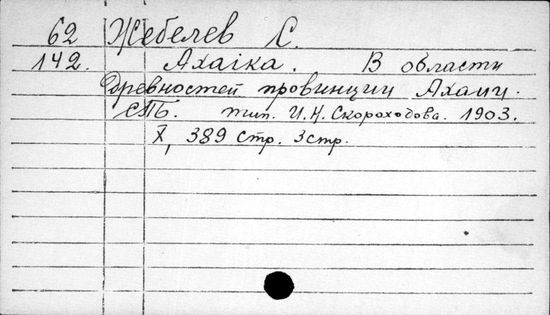 62 Жебелев С.
142. Ахаіка. В области
Древностей провинции Ахаии.
СПБ. тип. И. Н. Скороходова. 1903.
X, 389 стр. 3 стр.